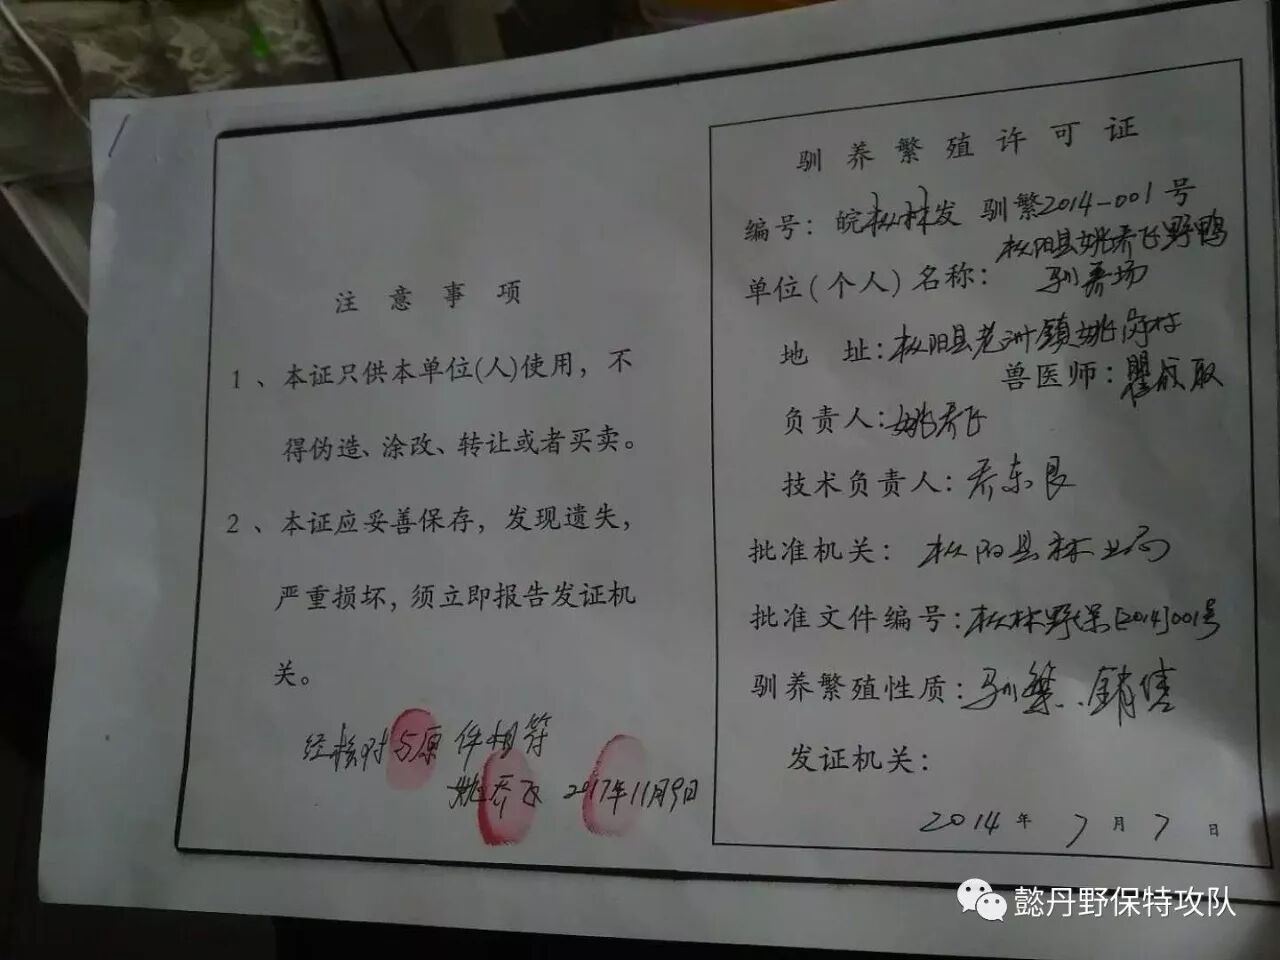 注意事项
1、本证只供本单位(人)使用，不
得伪造、涂改、转让或者买卖。
2、本证应妥善保存，发现遗失，
严重损坏，须立即报告发证机
关。
经核对与原件相符
姚乔飞 2017年11月9日
驯养繁殖许可证
编号：皖枞林发 驯繁2014-001号
枞阳县姚乔飞野鸭
单位(个人)名称：驯养场
地 址：枞阳县老洲镇姚岗村
兽医师：
负责人：姚乔飞
技术负责人：乔东良
批准机关：枞阳县林业局
批准文件编号：枞林野保[2014]001号
驯养繁殖性质：驯繁、销售
发证机关：
2014年7月7日
懿丹野保特攻队